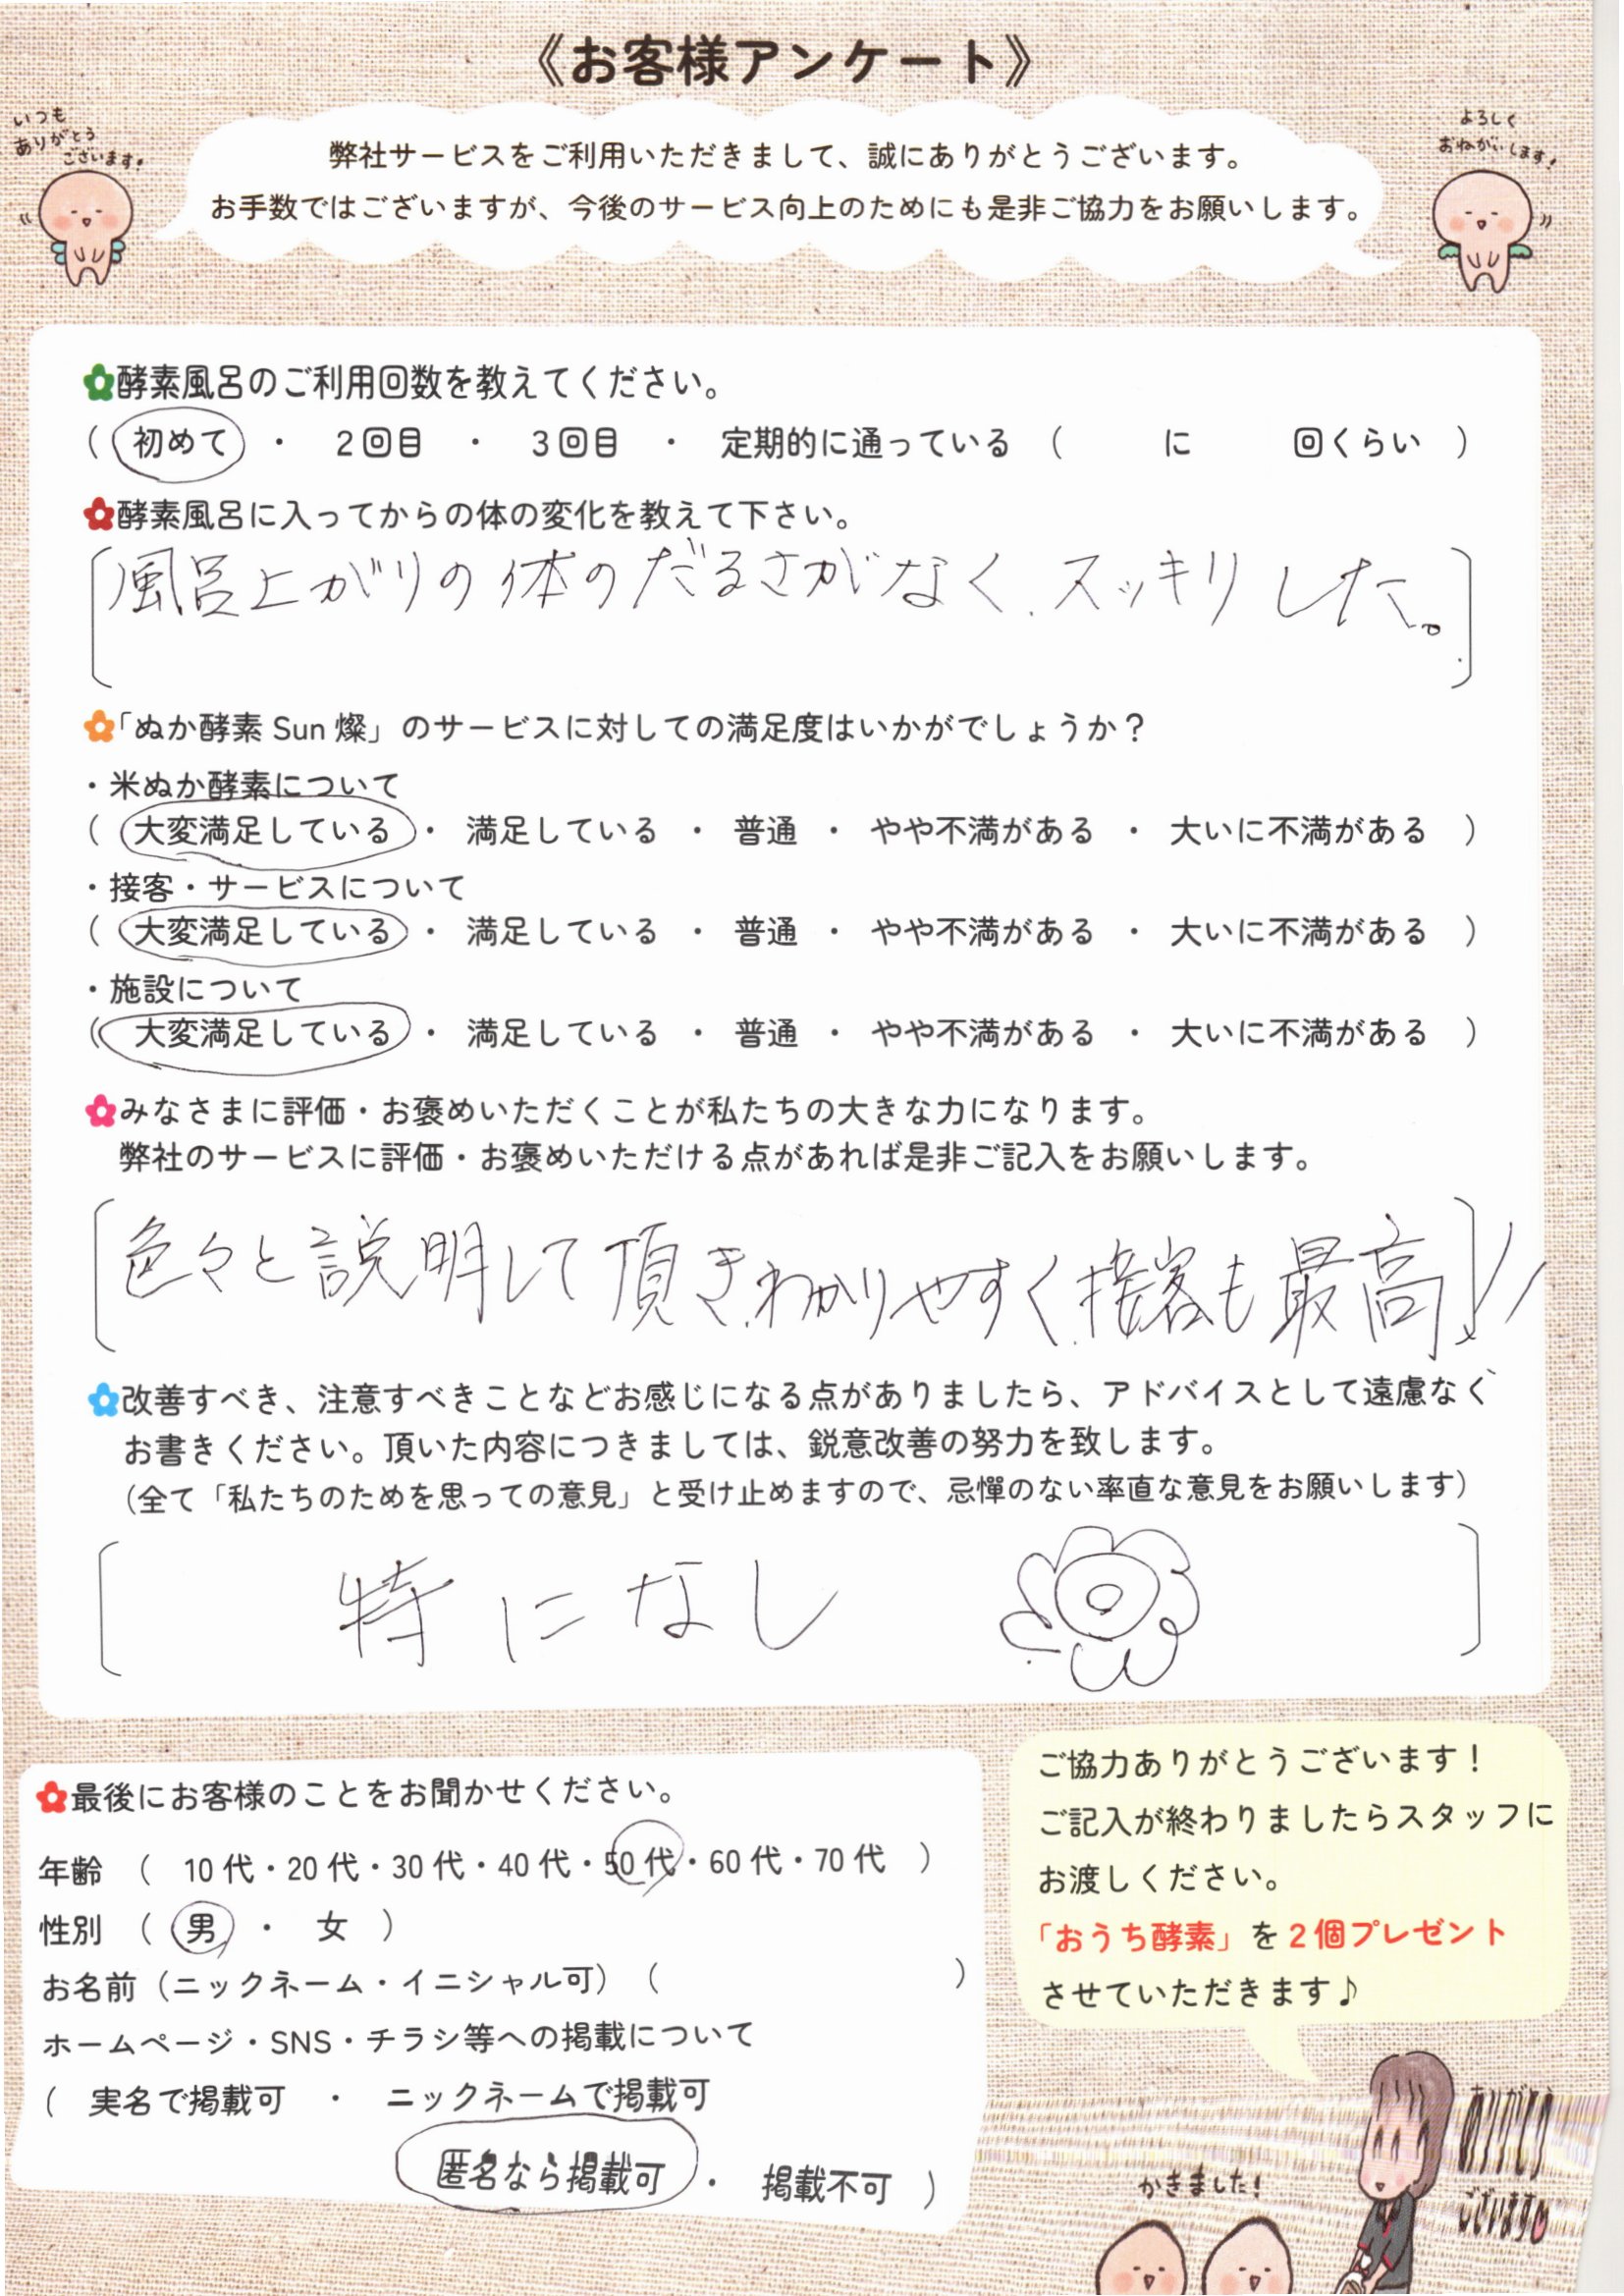 《お客様アンケート》
いつも
ありがとう
ございます!
よろしく
おねがいします!
弊社サービスをご利用いただきまして、誠にありがとうございます。
お手数ではございますが、今後のサービス向上のためにも是非ご協力をお願いします。
酵素風呂のご利用回数を教えてください。
( 初めて ・ 2回目 ・ 3回目 ・ 定期的に通っている ( に 回くらい )
酵素風呂に入ってからの体の変化を教えて下さい。
風呂上がりの体のだるさがなく、スッキリした。
「ぬか酵素 Sun 燦」のサービスに対しての満足度はいかがでしょうか?
・米ぬか酵素について
( 大変満足している ・ 満足している ・ 普通 ・ やや不満がある ・ 大いに不満がある )
・接客・サービスについて
( 大変満足している ・ 満足している ・ 普通 ・ やや不満がある ・ 大いに不満がある )
・施設について
( 大変満足している ・ 満足している ・ 普通 ・ やや不満がある ・ 大いに不満がある )
みなさまに評価・お褒めいただくことが私たちの大きな力になります。
弊社のサービスに評価・お褒めいただける点があれば是非ご記入をお願いします。
色々と説明して頂き、わかりやすく、接客も最高!!
改善すべき、注意すべきことなどお感じになる点がありましたら、アドバイスとして遠慮なく
お書きください。頂いた内容につきましては、鋭意改善の努力を致します。
(全て「私たちのためを思っての意見」と受け止めますので、忌憚のない率直な意見をお願いします)
特になし
最後にお客様のことをお聞かせください。
年齢 ( 10代・20代・30代・40代・50代・60代・70代 )
性別 ( 男 ・ 女 )
お名前(ニックネーム・イニシャル可) ( )
ホームページ・SNS・チラシ等への掲載について
( 実名で掲載可 ・ ニックネームで掲載可
匿名なら掲載可 ・ 掲載不可 )
ご協力ありがとうございます!
ご記入が終わりましたらスタッフに
お渡しください。
「おうち酵素」を2個プレゼント
させていただきます♪
ありがとう
ございます
かきました!